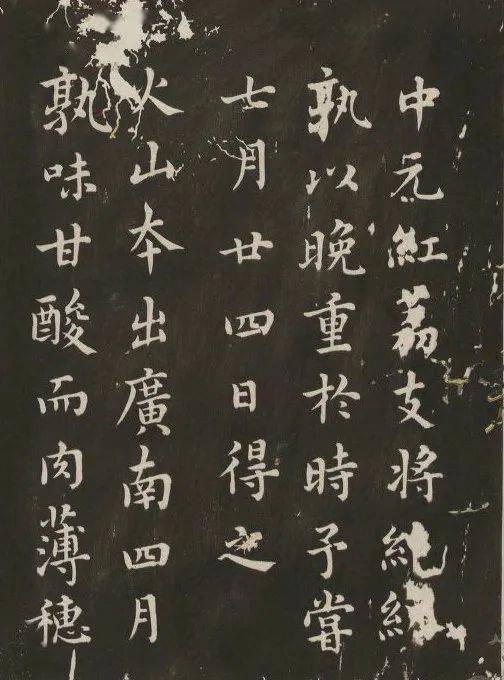 中元紅荔支將
孰以晚重於時予嘗
七月廿四日得之
火山本出廣南四月
孰味甘酸而肉薄穗